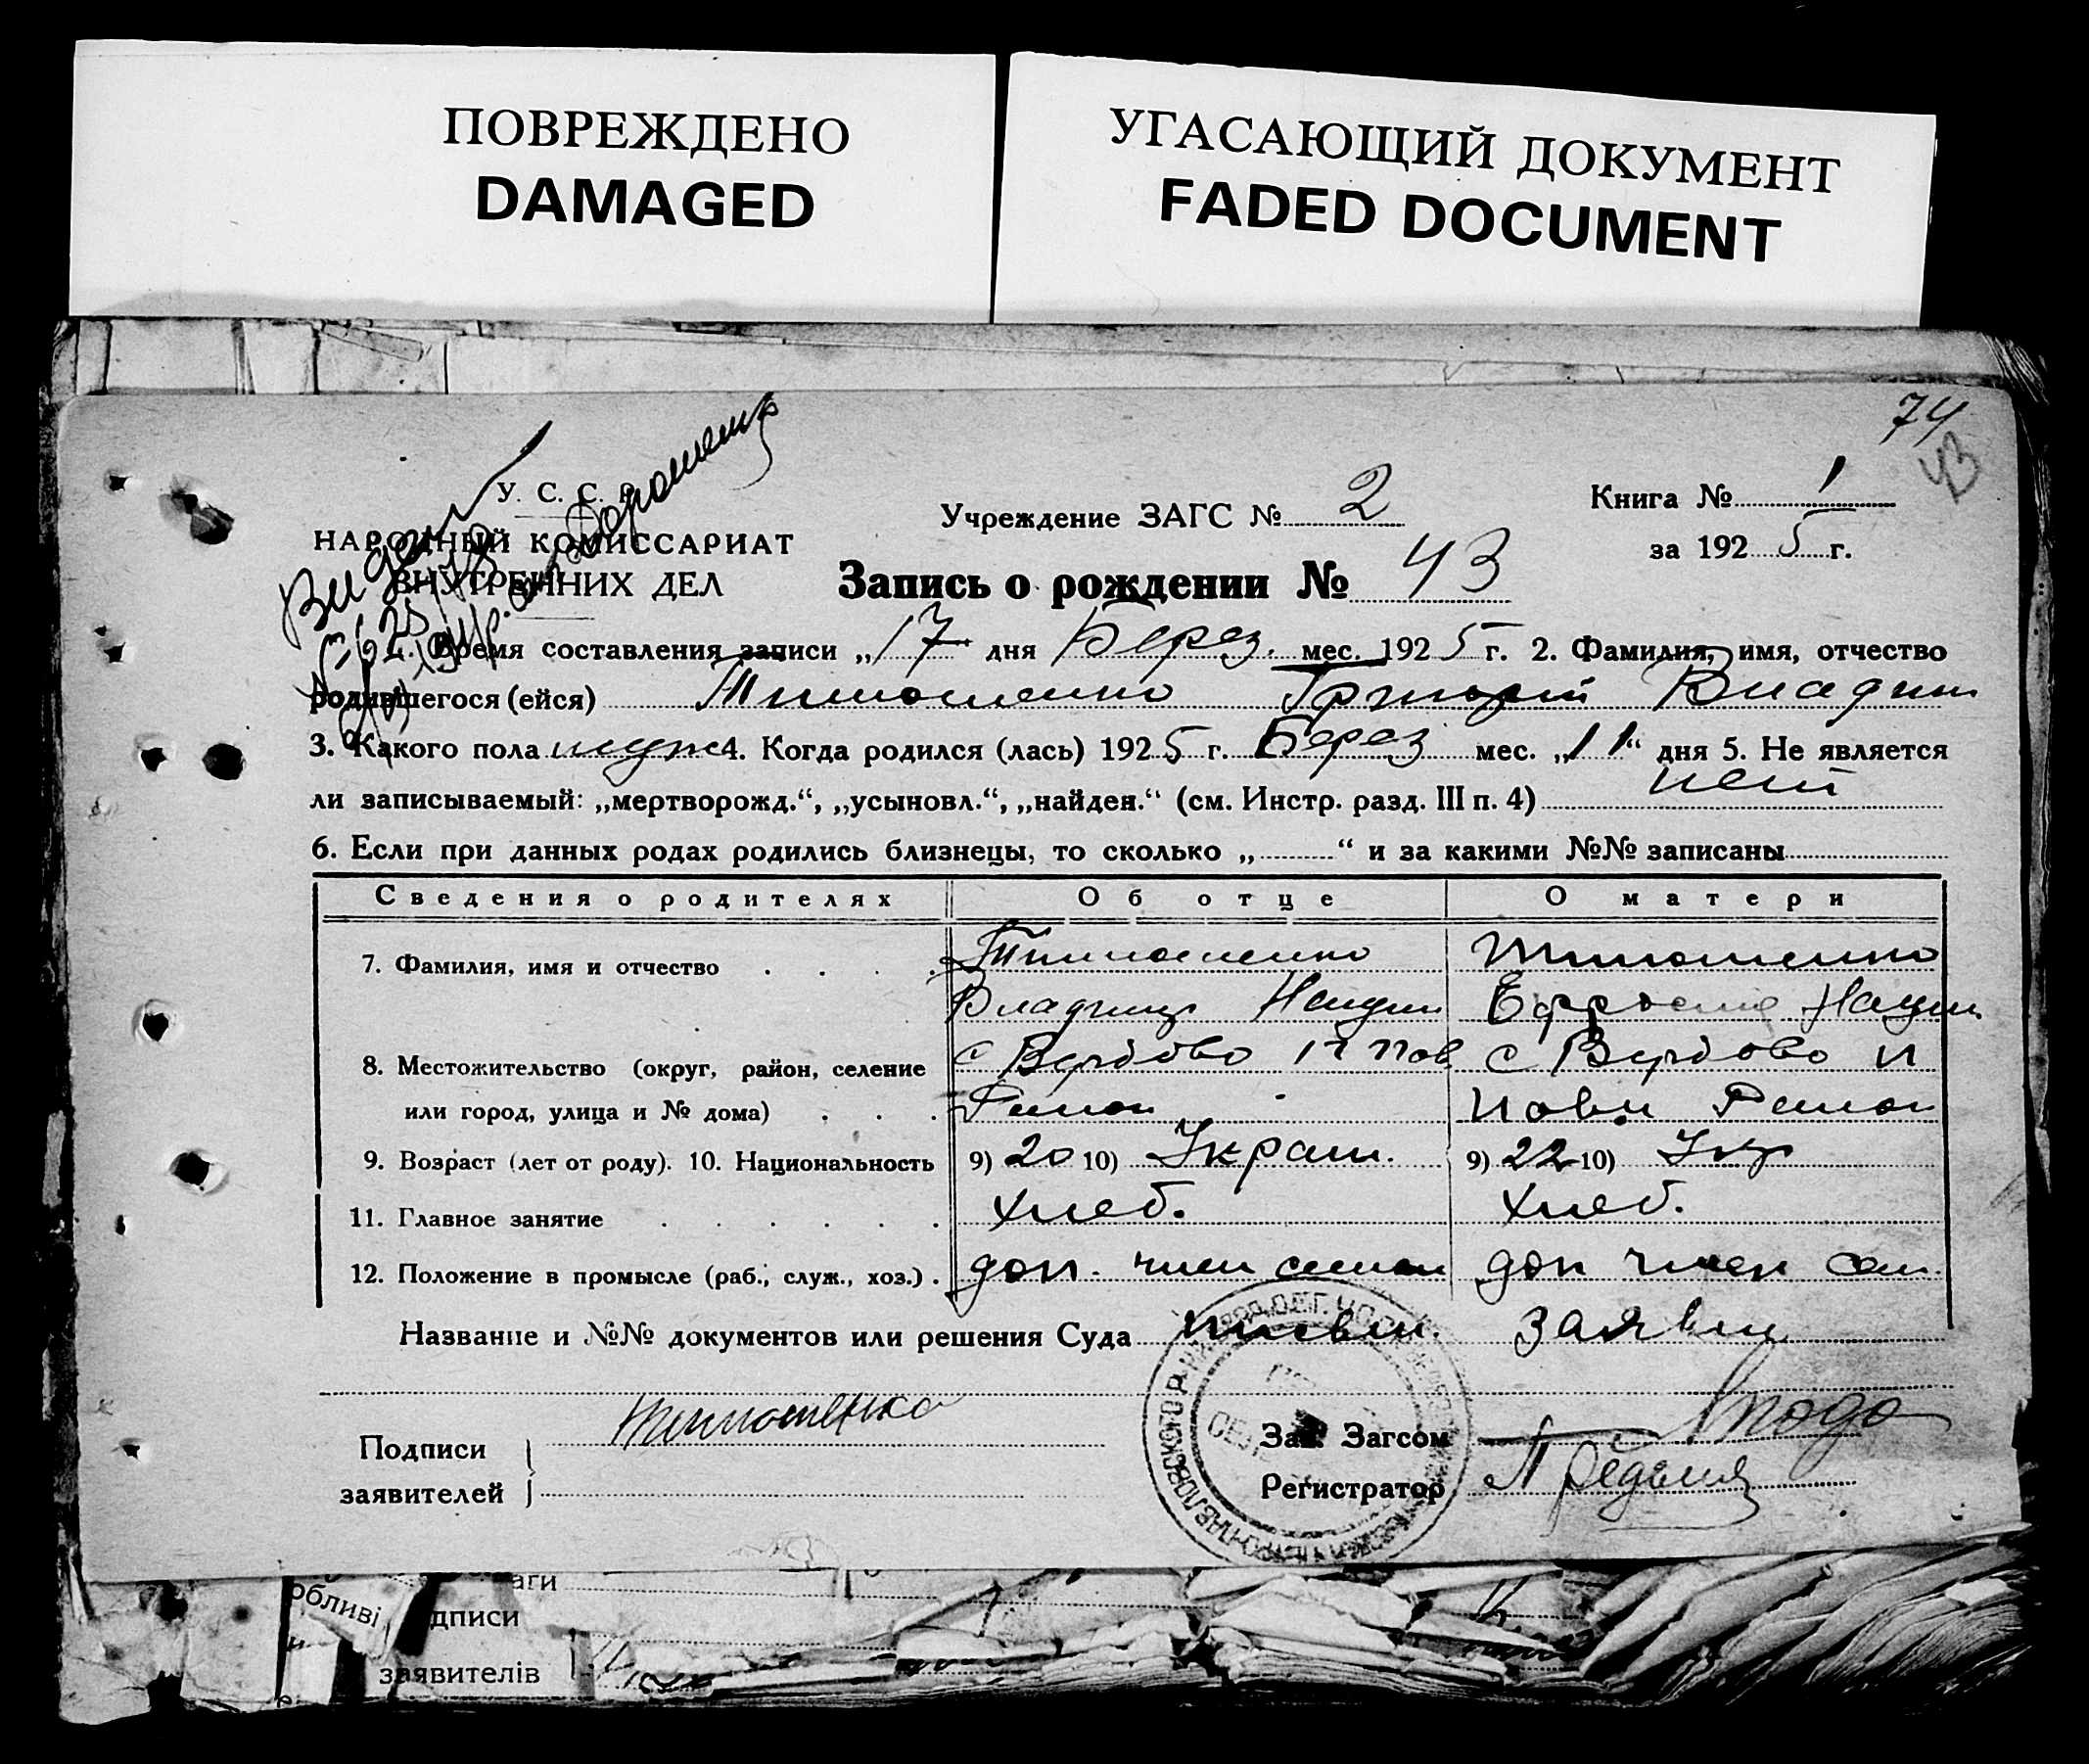 ПОВРЕЖДЕНО
DAMAGED
УГАСАЮЩИЙ ДОКУМЕНТ
FADED DOCUMENT
74
43
У. С. С. Р.
НАРОДНЫЙ КОМИССАРИАТ
ВНУТРЕННИХ ДЕЛ
Учреждение ЗАГС № 2
Книга № 1
за 1925 г.
Запись о рождении № 43
1. Время составления записи „17 дня Берез. мес. 1925 г. 2. Фамилия, имя, отчество
родившегося (ейся) Тимошенко Григорий Владим
3. Какого пола муж 4. Когда родился (лась) 1925 г. Берез мес. „11“ дня 5. Не является
ли записываемый: „мертворожд.“, „усыновл.“, „найден.“ (см. Инстр. разд. III п. 4) нет
6. Если при данных родах родились близнецы, то сколько „ “ и за какими №№ записаны
Сведения о родителях Об отце О матери
7. Фамилия, имя и отчество Тимошенко Тимошенко
Владимир Ефросиния
8. Местожительство (округ, район, селение с Вербово с Вербово
или город, улица и № дома) Район Район
9. Возраст (лет от роду). 10. Национальность 9) 20 10) Украин. 9) 22 10) Укр
11. Главное занятие хлеб. хлеб.
12. Положение в промысле (раб., служ., хоз.) доп. член семьи доп член сем.
Название и №№ документов или решения Суда заявлен
Подписи
заявителей
Тимошенко
Зав. Загсом
Регистратор
аги
обливі
дписи
заявителів